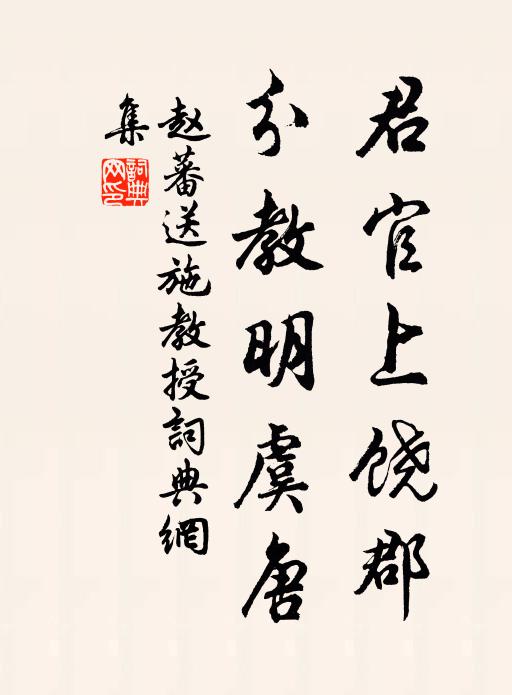 君官上饶郡
分教明虞唐
赵蕃送施教授詞典網
集
詞典網印